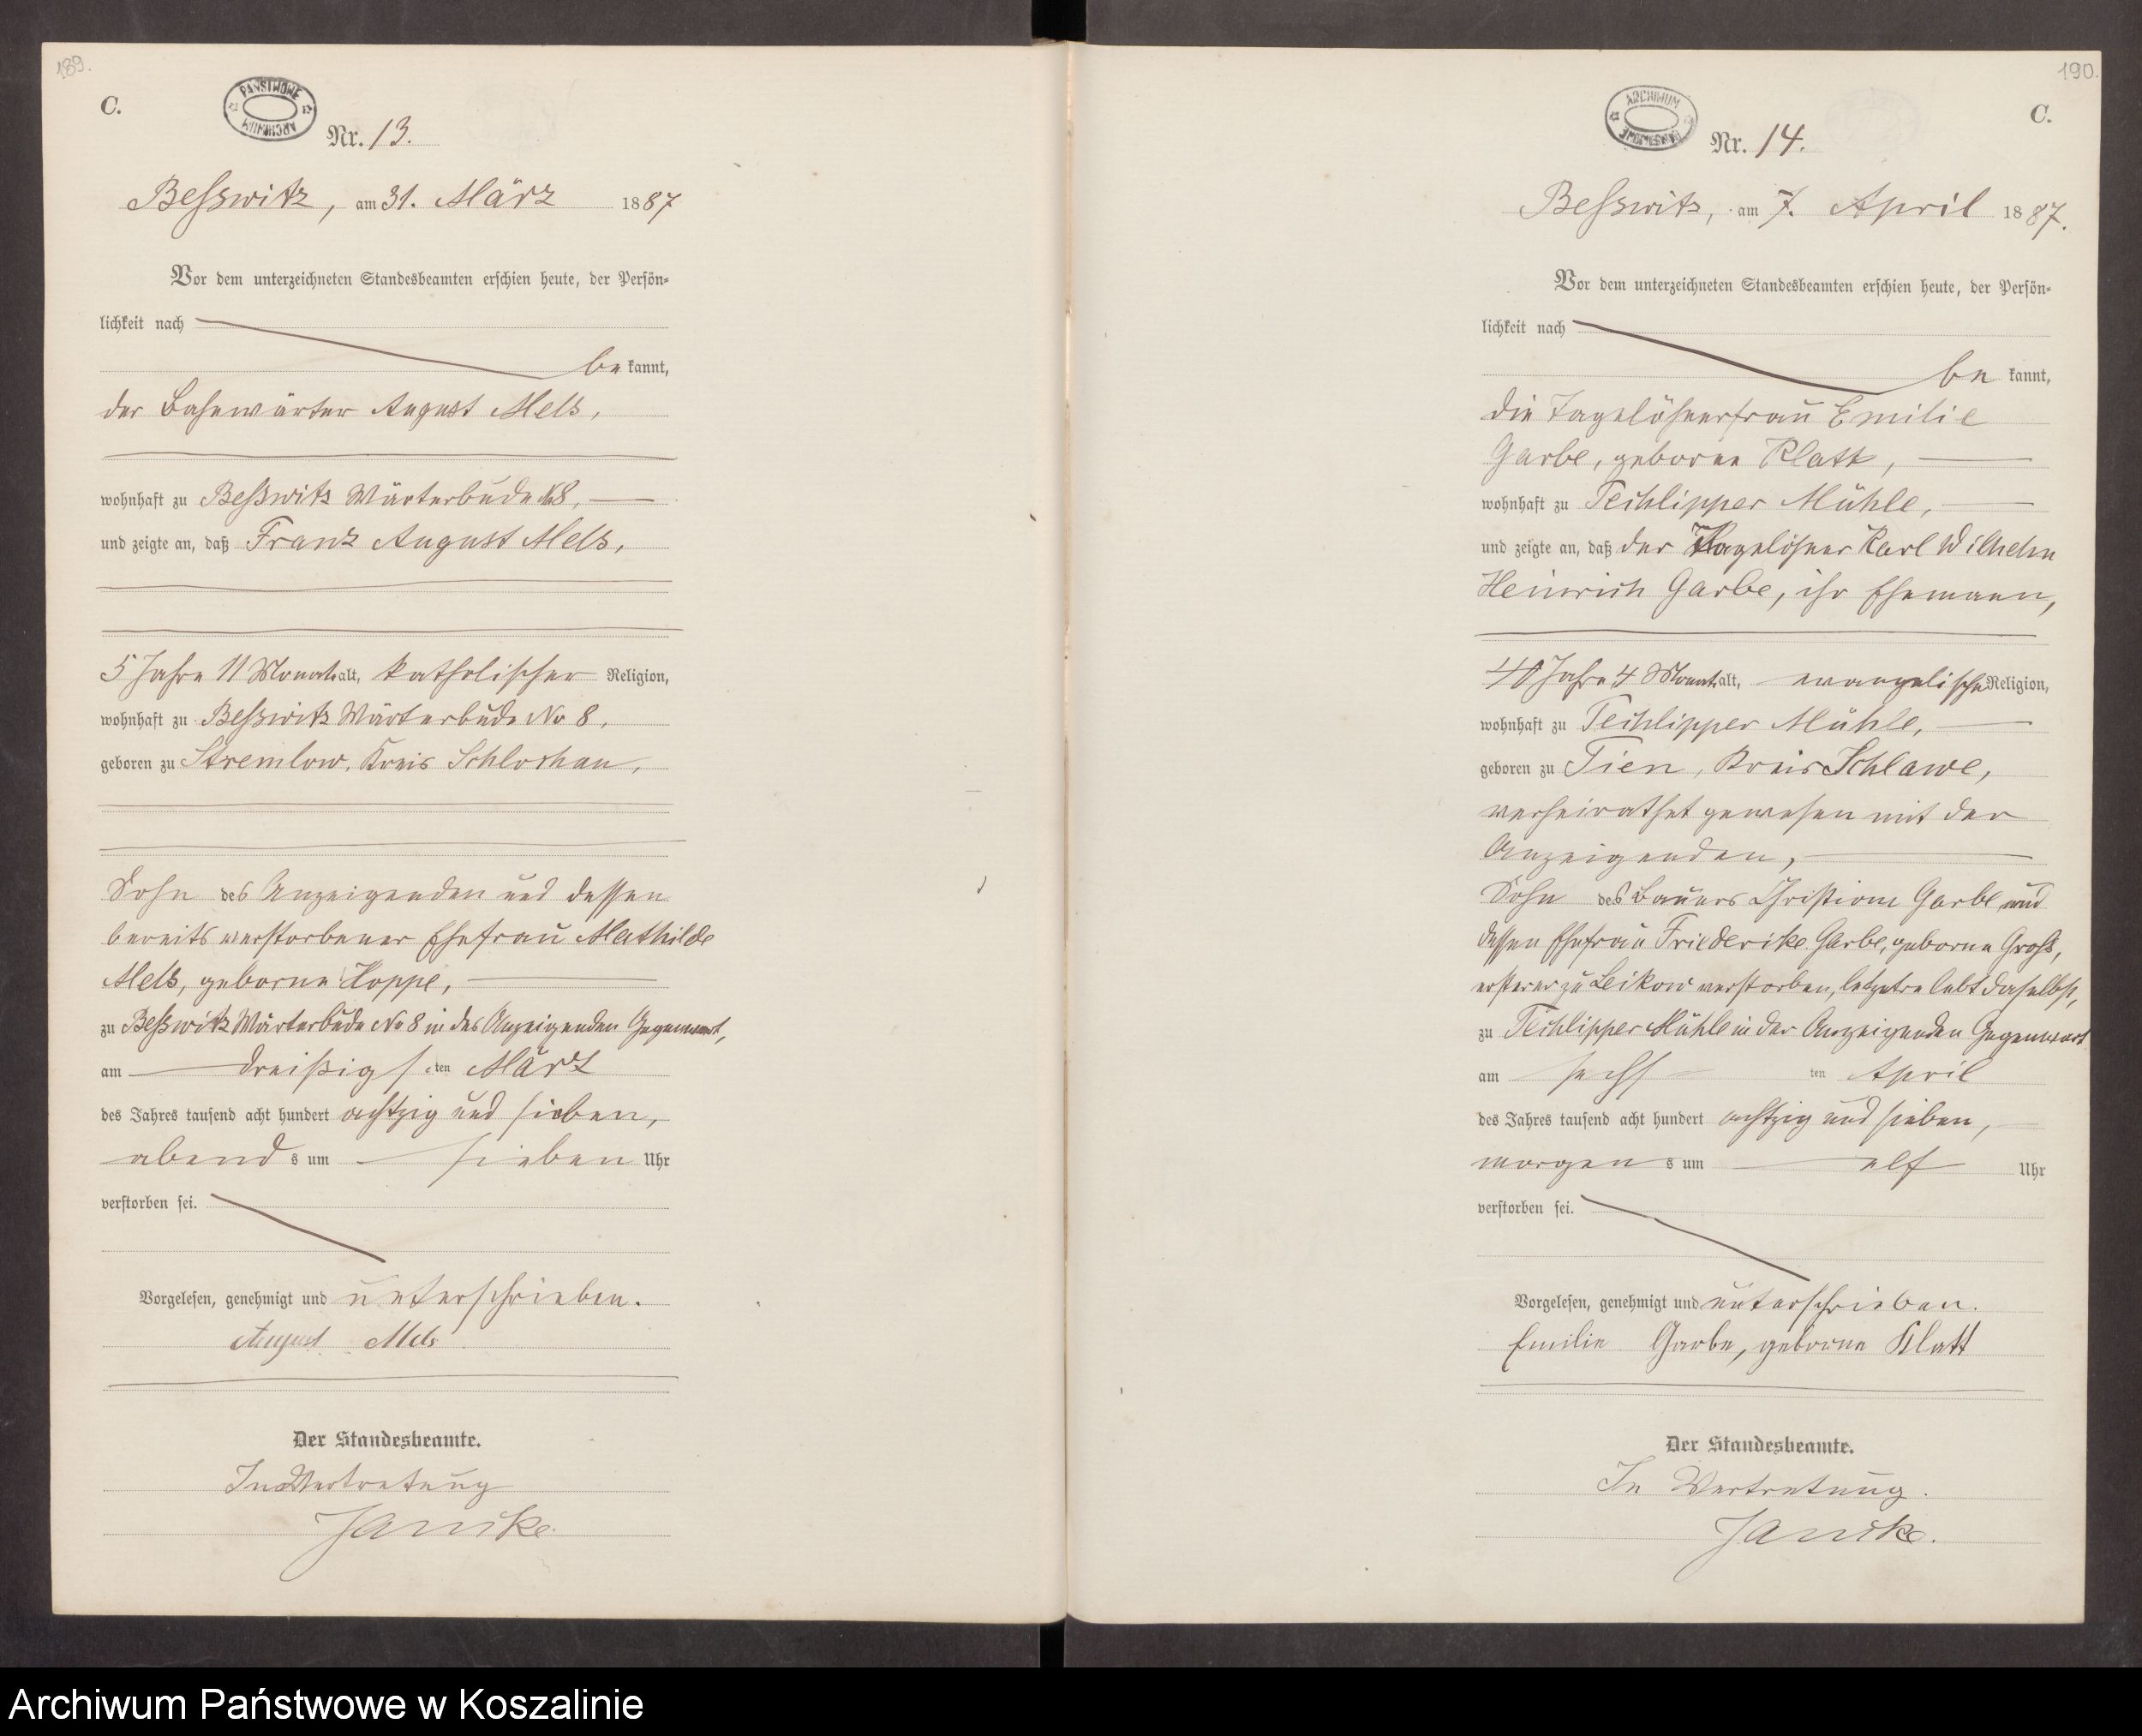 189.
C.
PAŃSTWOWE ARCHIWUM
Nr. 13.
Beßwitz, am 31. März 1887
Vor dem unterzeichneten Standesbeamten erschien heute, der Persön-
lichkeit nach
be kannt,
der Bahnwärter August Mels,
wohnhaft zu Beßwitz Wärterbude No 8,
und zeigte an, daß Franz August Mels,
5 Jahre 11 Monate alt, katholischer Religion,
wohnhaft zu Beßwitz Wärterbude No 8,
geboren zu Stremlow, Kreis Schlochau,
Sohn des Anzeigenden und dessen
bereits verstorbener Ehefrau Mathilde
Mels, geborne Hoppe,
zu Beßwitz Wärterbude No 8 in des Anzeigenden Gegenwart,
am dreißigsten März
des Jahres tausend acht hundert achtzig und sieben,
abends um sieben Uhr
verstorben sei.
Vorgelesen, genehmigt und unterschrieben.
August Mels
Der Standesbeamte.
In Vertretung
Janike
190.
C.
ARCHIWUM PAŃSTWOWE
Nr. 14.
Beßwitz, am 7. April 1887.
Vor dem unterzeichneten Standesbeamten erschien heute, der Persön-
lichkeit nach
be kannt,
die Tagelöhnerfrau Emilie
Garbe, geborne Klatt,
wohnhaft zu Techlipper Mühle,
und zeigte an, daß der Tagelöhner Karl Wilhelm
Heinrich Garbe, ihr Ehemann,
Jahre 4 Monat alt, evangelischer Religion,
wohnhaft zu Techlipper Mühle,
geboren zu Tien, Kreis Schlawe,
verheirathet gewesen mit der
Anzeigenden,
Sohn des Bauers Christian Garbe und
dessen Ehefrau Friederike Garbe, geborne Groß,
ersterer zu Leikow verstorben, letztre lebt daselbst,
zu Techlipper Mühle in der Anzeigenden Gegenwart
am sechsten April
des Jahres tausend acht hundert achtzig und sieben,
morgens um elf Uhr
verstorben sei.
Vorgelesen, genehmigt und unterschrieben.
Emilie Garbe, geborne Klatt
Der Standesbeamte.
In Vertretung.
Janike.
Archiwum Państwowe w Koszalinie